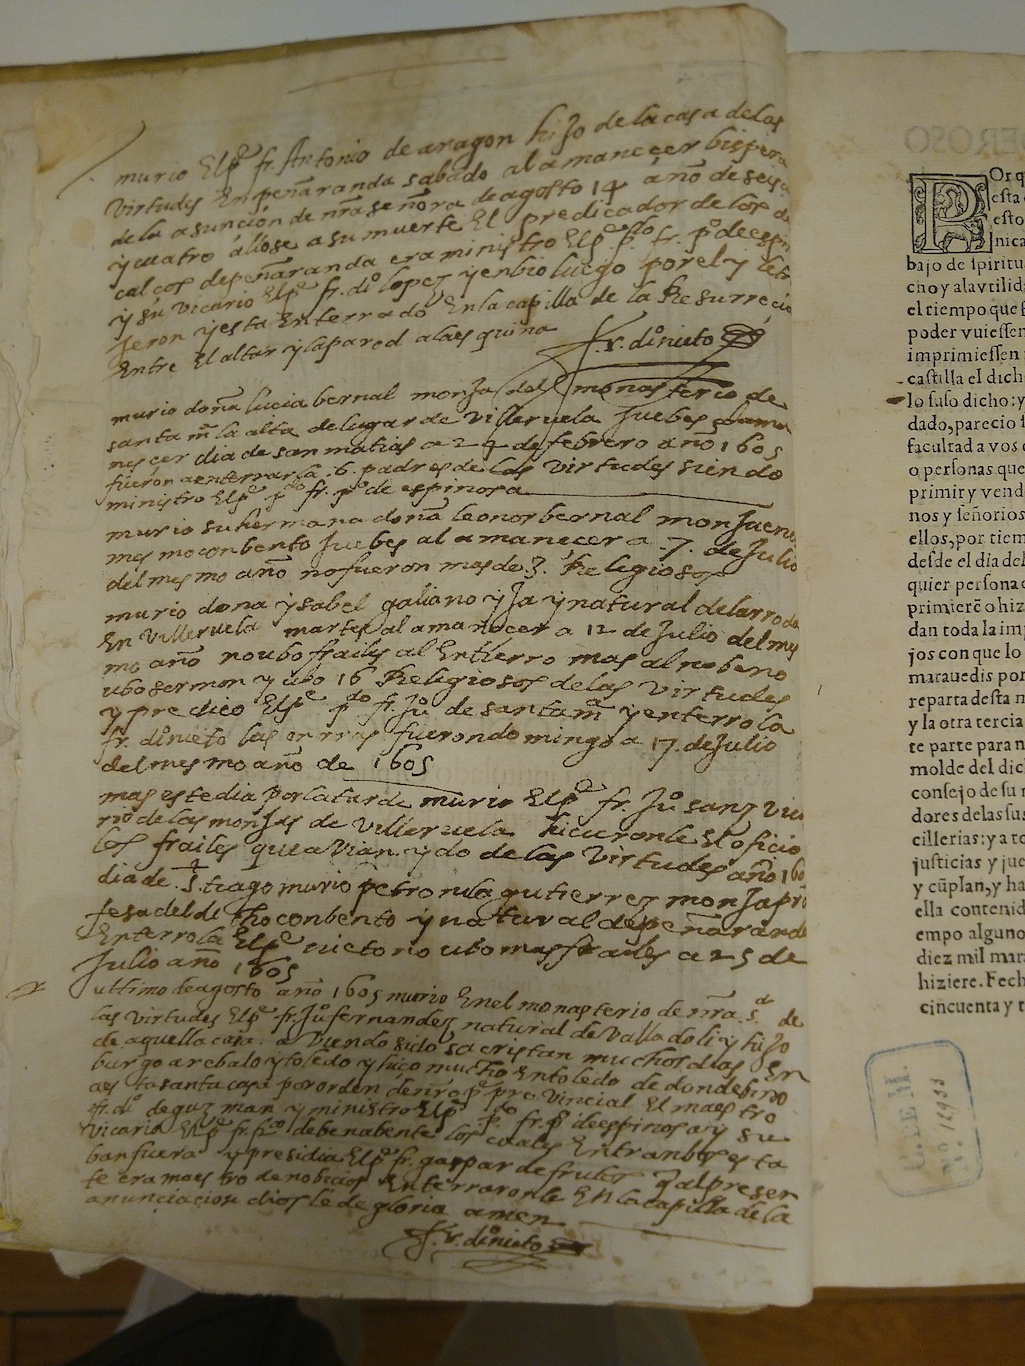 murio El pe fr. Antonio de aragon hijo de la casa de las
virtudes En peñaranda sabado al amanecer bispera
de la asunçion de nra señora de agosto 14 año de seis
y cuatro allose a su muerte El predicador de los
calços de peñaranda era ministro El pe pdo fr. po de espin
y su vicario El pe fr. dio lopez y enbio luego por el y le
jeron y esta Enterrado En la capilla de la Resurreciō
Entre El altar y la pared a la esquina
fr. dio nieto
murio doña lucia bernal monja del monasterio de
santa ma la alta de lugar de Villeruela juebes al ama
nescer dia de san matias a 24 de febrero año 1605
fueron a enterrarla 6. padres de las virtudes siendo
ministro El pe pdo fr. po de espinosa
murio su hermana doña leonor bernal monja en el
mesmo conbento juebes al amanecer a 7. de julio
del mesmo año no fueron mas de 3. Religiosos
murio dona ysabel galiano y natural de la rroda
En Villeruela martes al amanecer a 12 de julio del mes
mo año no ubo frailes al Entierro mas al nobeno
ubo sermon y ubo 16 Religiosos de las virtudes
y predico El pe pdo fr. juo de santa ma y enterrola
fr. dio nieto las onrras fueron domingo a 17. de julio
del mesmo año de 1605
mas este dia por la tarde murio El pe fr. juo sanz vica
rio de las monjas de villeruela hicieronle El oficio
los frailes que avian ydo de las virtudes año 160
dia de S. tiago murio petronila gutierrez monja pro
fesa del dicho conbento y natural de peñaranda
Enterrola El pe nieto no ubo mas frailes a 25 de
Julio año 1605
ultimo de agosto año 1605 murio En el monasterio de nra sa de
las virtudes El pe fr. juo fernandez natural de Valladolid y hijo
de aquella casa. aviendo sido sacristan muchos dias En
burgo arebalo y toledo y hiço mucho En toledo de donde bino
a esta santa casa por orden de nro pe provincial El maestro
fr. dio de guzman y ministro El pe pdo fr. po de espinosa y su
vicario El pe fr. de benabente los cuales Entranbos esta
ban fuera y presidia El pe fr. gaspar de frutos q al presen
te era maestro de nobicios Enterraronle En la capilla de la
anunciacion dios le de gloria amen
fr. dio nieto
EROSO
POr q
esta
esto
nica
bajo de spiritu
cho y ala vtilid
el tiempo que
poder vuiessen
imprimiessen
castilla el dich
lo suso dicho: y
dado, parecio
facultad a vos
o personas que
primir y vend
nos y señorios
ellos, por tiem
desde el dia del
quier persona
primierē o hiz
dan toda la im
jos con que lo
marauedis por
reparta desta
y la otra tercia
te parte para
molde del dic
consejo de su
dores delas sus
cillerias: y a to
justicias y jue
y cūplan, y ha
ella contenid
empo alguno
diez mil mara
hiziere. Fech
cincuenta y